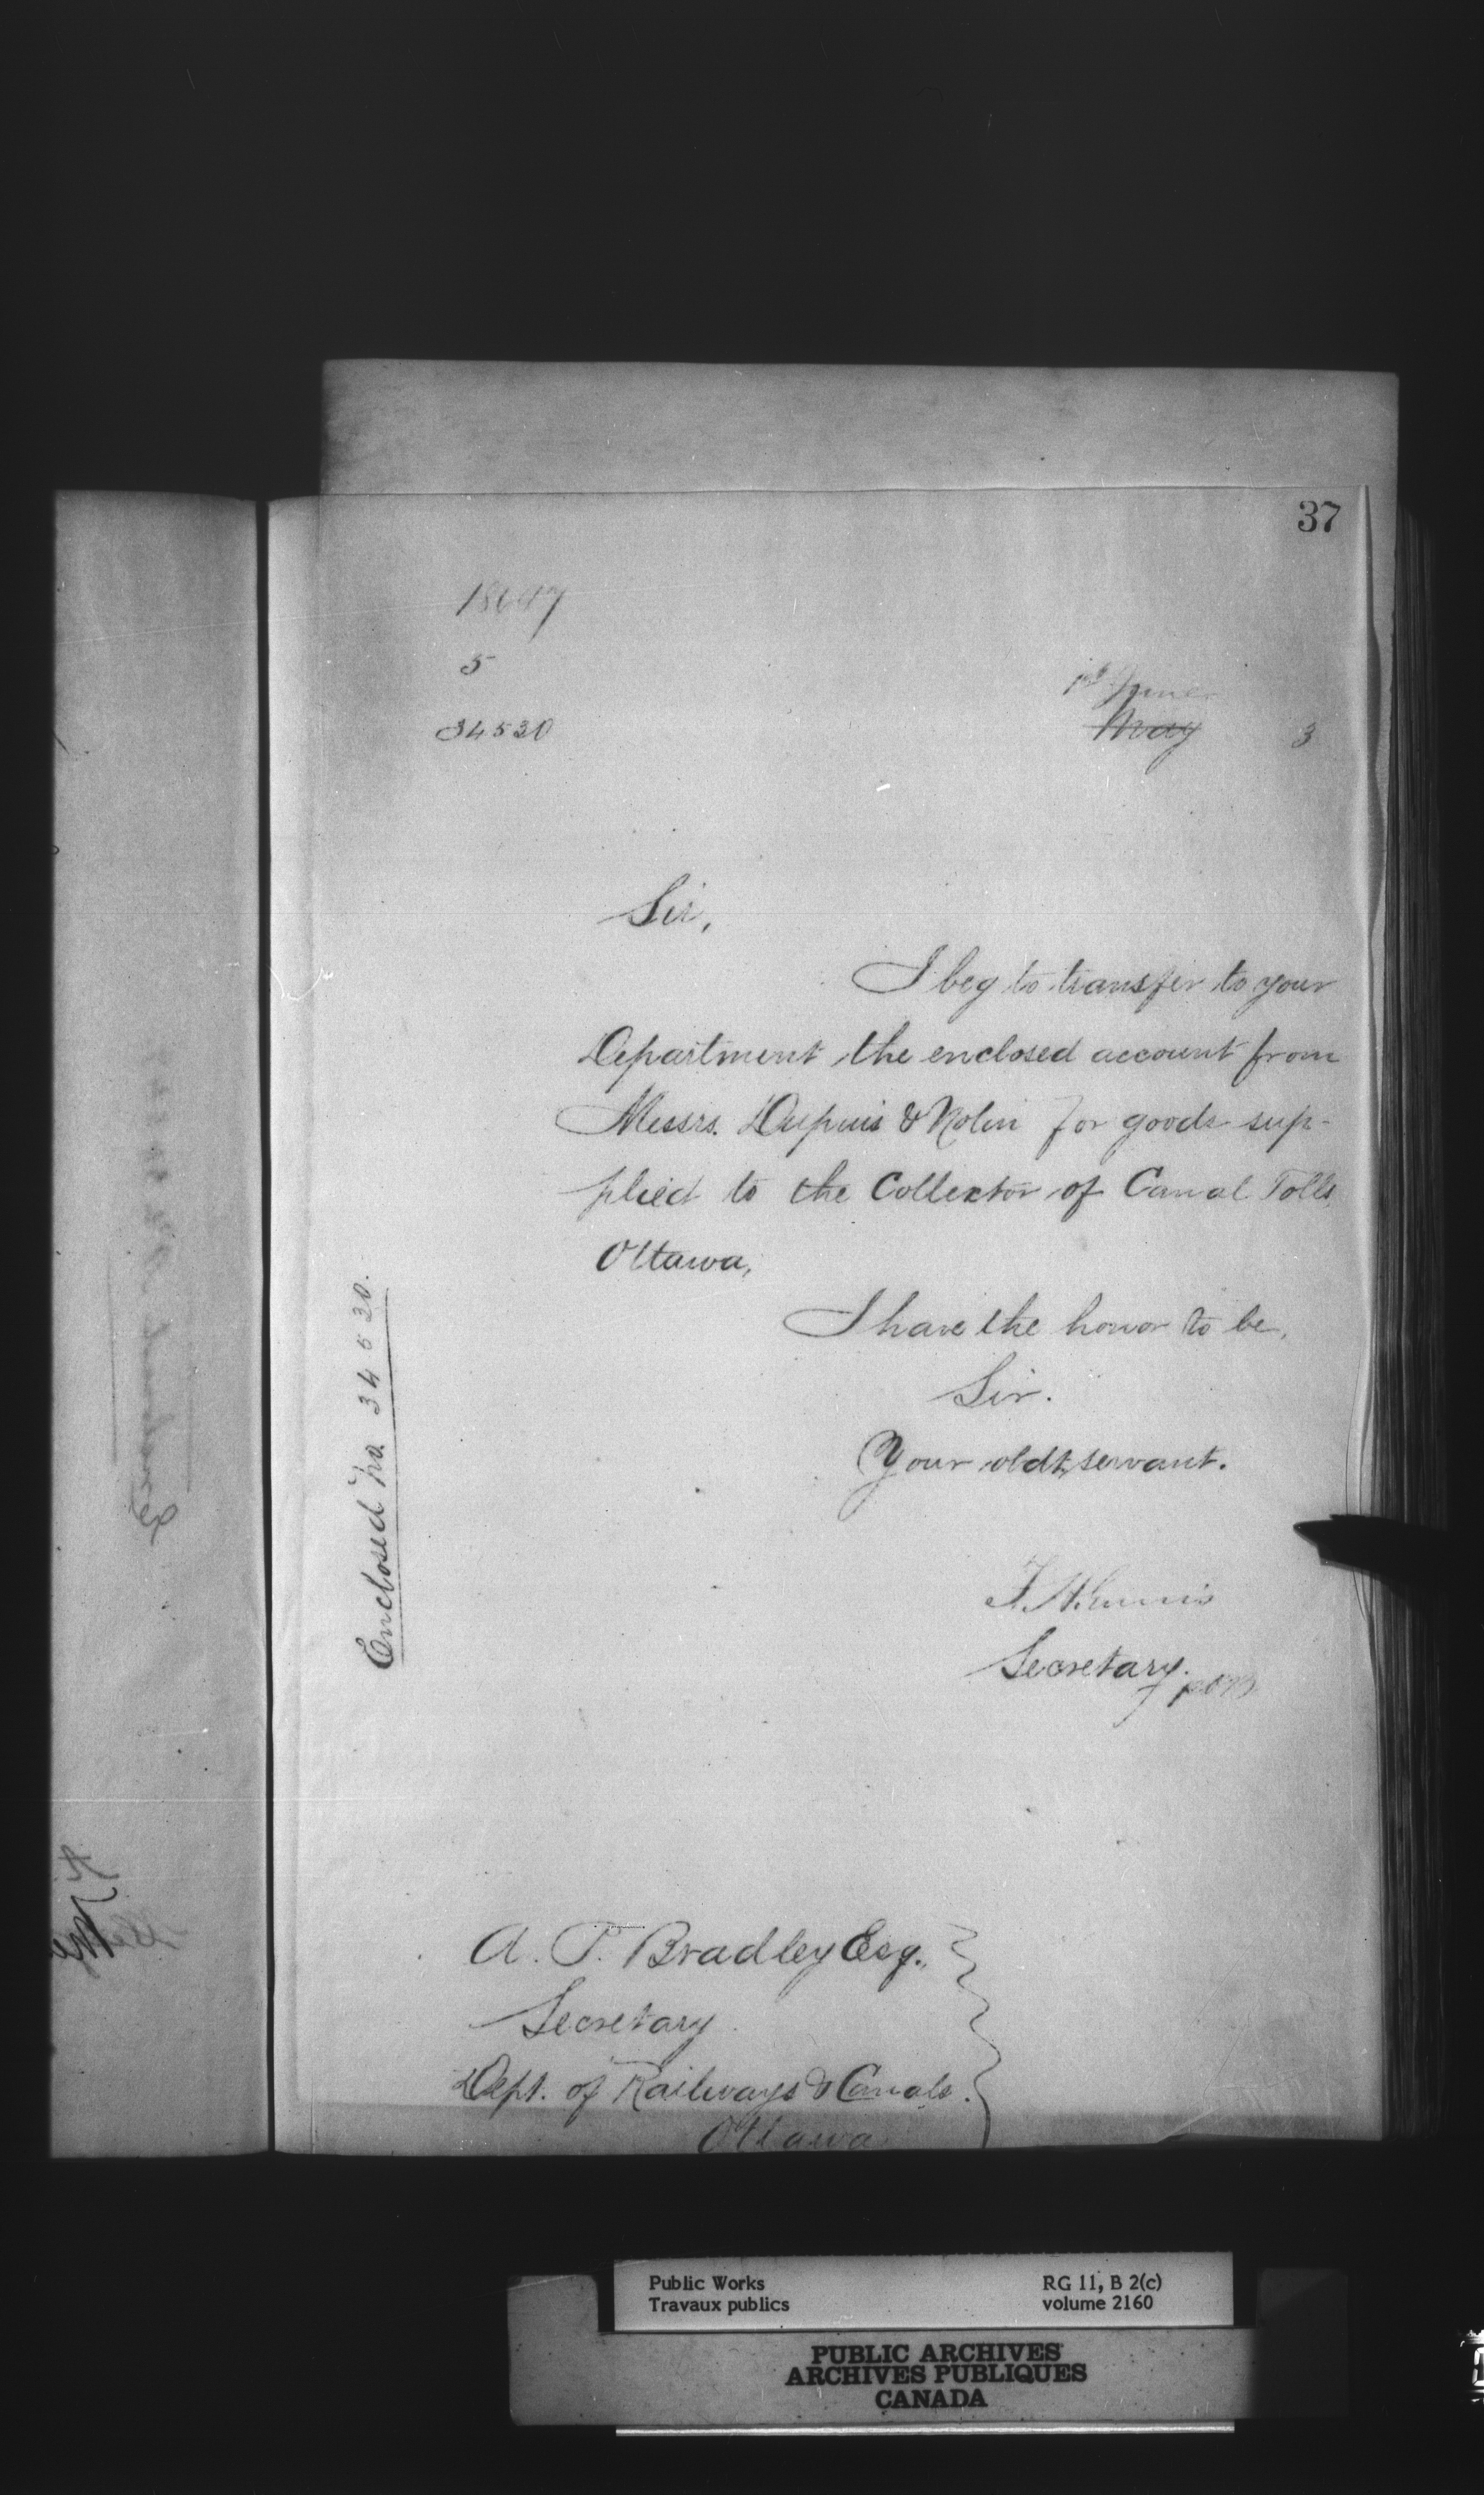 37
5
34530
1st June
May 3
Sir,
I beg to transfer to your
Department the enclosed account from
Messrs. Dupuis & Nolin for goods sup-
plied to the Collector of Canal Tolls
Ottawa,
I have the honor to be,
Sir.
Your obdt servant.
Secretary.
Enclosed no 34530.
A. P. Bradley Esq.,
Secretary
Dept. of Railways & Canals.
Ottawa
Public Works
Travaux publics
RG 11, B 2(c)
volume 2160
PUBLIC ARCHIVES
ARCHIVES PUBLIQUES
CANADA